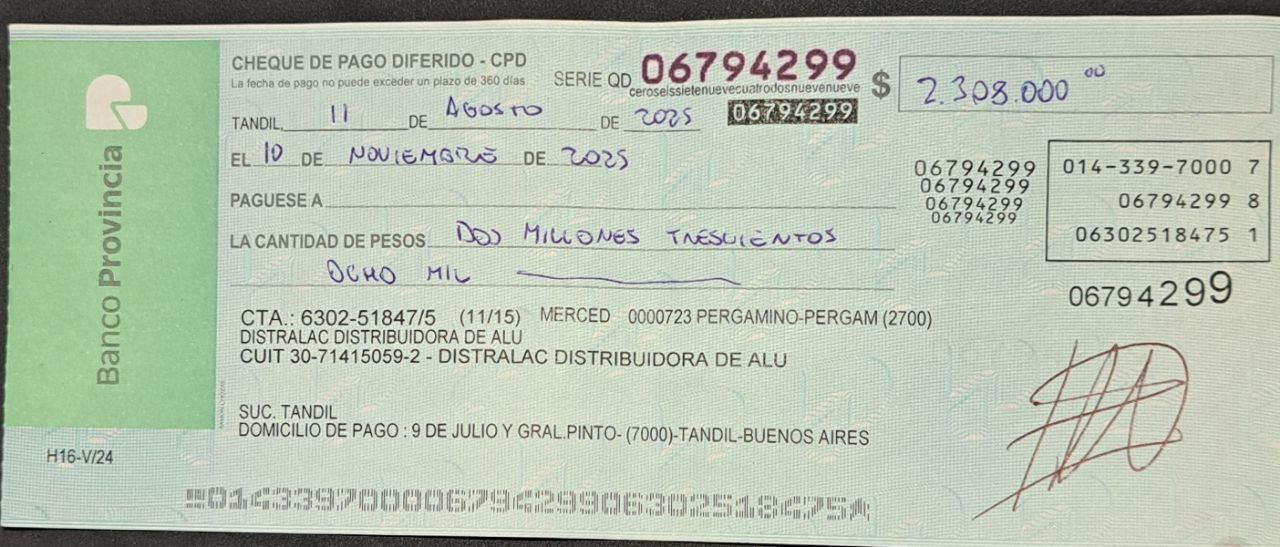 Banco Provincia
H16-V/24
CHEQUE DE PAGO DIFERIDO - CPD
La fecha de pago no puede exceder un plazo de 360 días
SERIE QD 06794299
ceroseissietenuevecuatrodosnuevenueve
06794299
$ 2.308.000 00
TANDIL, 11 DE AGOSTO DE 2025
EL 10 DE NOVIEMBRE DE 2025
PAGUESE A
LA CANTIDAD DE PESOS DOS MILLONES TRESCIENTOS
OCHO MIL
06794299
06794299
06794299
06794299
014-339-7000 7
06794299 8
06302518475 1
06794299
CTA.: 6302-51847/5 (11/15) MERCED 0000723 PERGAMINO-PERGAM (2700)
DISTRALAC DISTRIBUIDORA DE ALU
CUIT 30-71415059-2 - DISTRALAC DISTRIBUIDORA DE ALU
SUC. TANDIL
DOMICILIO DE PAGO : 9 DE JULIO Y GRAL.PINTO- (7000)-TANDIL-BUENOS AIRES
01433970000679429906302518475